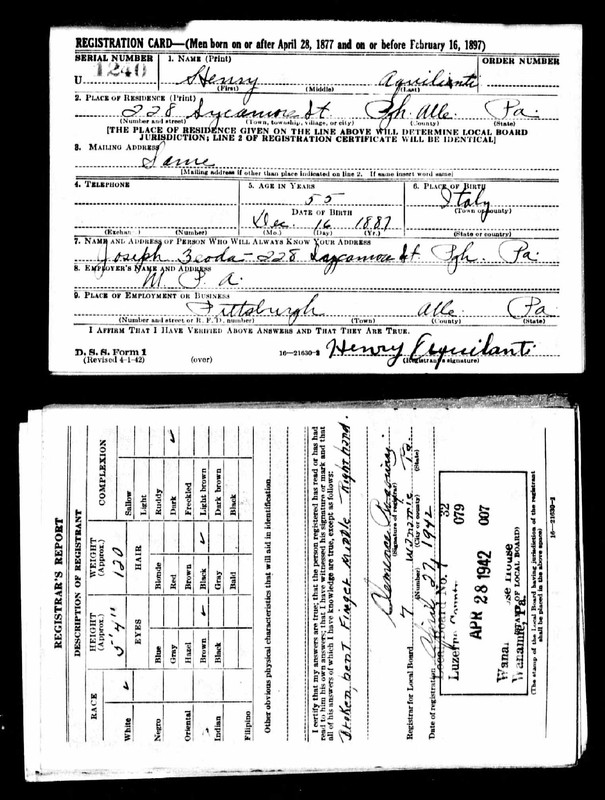 REGISTRATION CARD—(Men born on or after April 28, 1877 and on or before February 16, 1897)
SERIAL NUMBER 1. NAME (Print) ORDER NUMBER
U 1240 Henry Aquilianti
(First) (Middle) (Last)
2. PLACE OF RESIDENCE (Print)
228 Sycamore St Pgh. Alle. Pa.
(Number and street) (Town, township, village, or city) (County) (State)
[THE PLACE OF RESIDENCE GIVEN ON THE LINE ABOVE WILL DETERMINE LOCAL BOARD
JURISDICTION; LINE 2 OF REGISTRATION CERTIFICATE WILL BE IDENTICAL]
3. MAILING ADDRESS
Same
[Mailing address if other than place indicated on line 2. If same insert word same]
4. TELEPHONE 5. AGE IN YEARS 6. PLACE OF BIRTH
55 Italy
DATE OF BIRTH (Town or county)
Dec. 16 1887
(Exchange) (Number) (Mo.) (Day) (Yr.) (State or country)
7. NAME AND ADDRESS OF PERSON WHO WILL ALWAYS KNOW YOUR ADDRESS
Joseph 228 Sycamore St. Pgh. Pa.
8. EMPLOYER'S NAME AND ADDRESS
W. P. A.
9. PLACE OF EMPLOYMENT OR BUSINESS
Pittsburgh Alle Pa
(Number and street or R. F. D. number) (Town) (County) (State)
I AFFIRM THAT I HAVE VERIFIED ABOVE ANSWERS AND THAT THEY ARE TRUE.
D. S. S. Form 1
(Revised 4-1-42) (over) 16—21630-2 Henry Aquilanti
(Registrant's signature)
REGISTRAR'S REPORT
DESCRIPTION OF REGISTRANT
RACE HEIGHT (Approx.) WEIGHT (Approx.) COMPLEXION
5' 4" 120
EYES HAIR
White ✓ Sallow
Light
Negro Blue Blonde Ruddy
Gray Red Dark ✓
Oriental Hazel Brown Freckled
Brown ✓ Black ✓ Light brown
Indian Black Gray Dark brown
Filipino Bald Black
Other obvious physical characteristics that will aid in identification
I certify that my answers are true; that the person registered has read or has had
read to him his own answers; that I have witnessed his signature or mark and that
all of his answers of which I have knowledge are true, except as follows:
Broken, bent Finger Middle Right hand.
(Signature of registrar)
Registrar for Local Board 7 Wanamie Pa.
(Number) (City or county) (State)
Date of registration April 27, 1942
Local Board No. 7 32
Luzerne County 079
APR 28 1942 007
Wanamie, Pa.
(STAMP OF LOCAL BOARD)
(The stamp of the Local Board having jurisdiction of the registrant
shall be placed in the above space)
16—21630-2